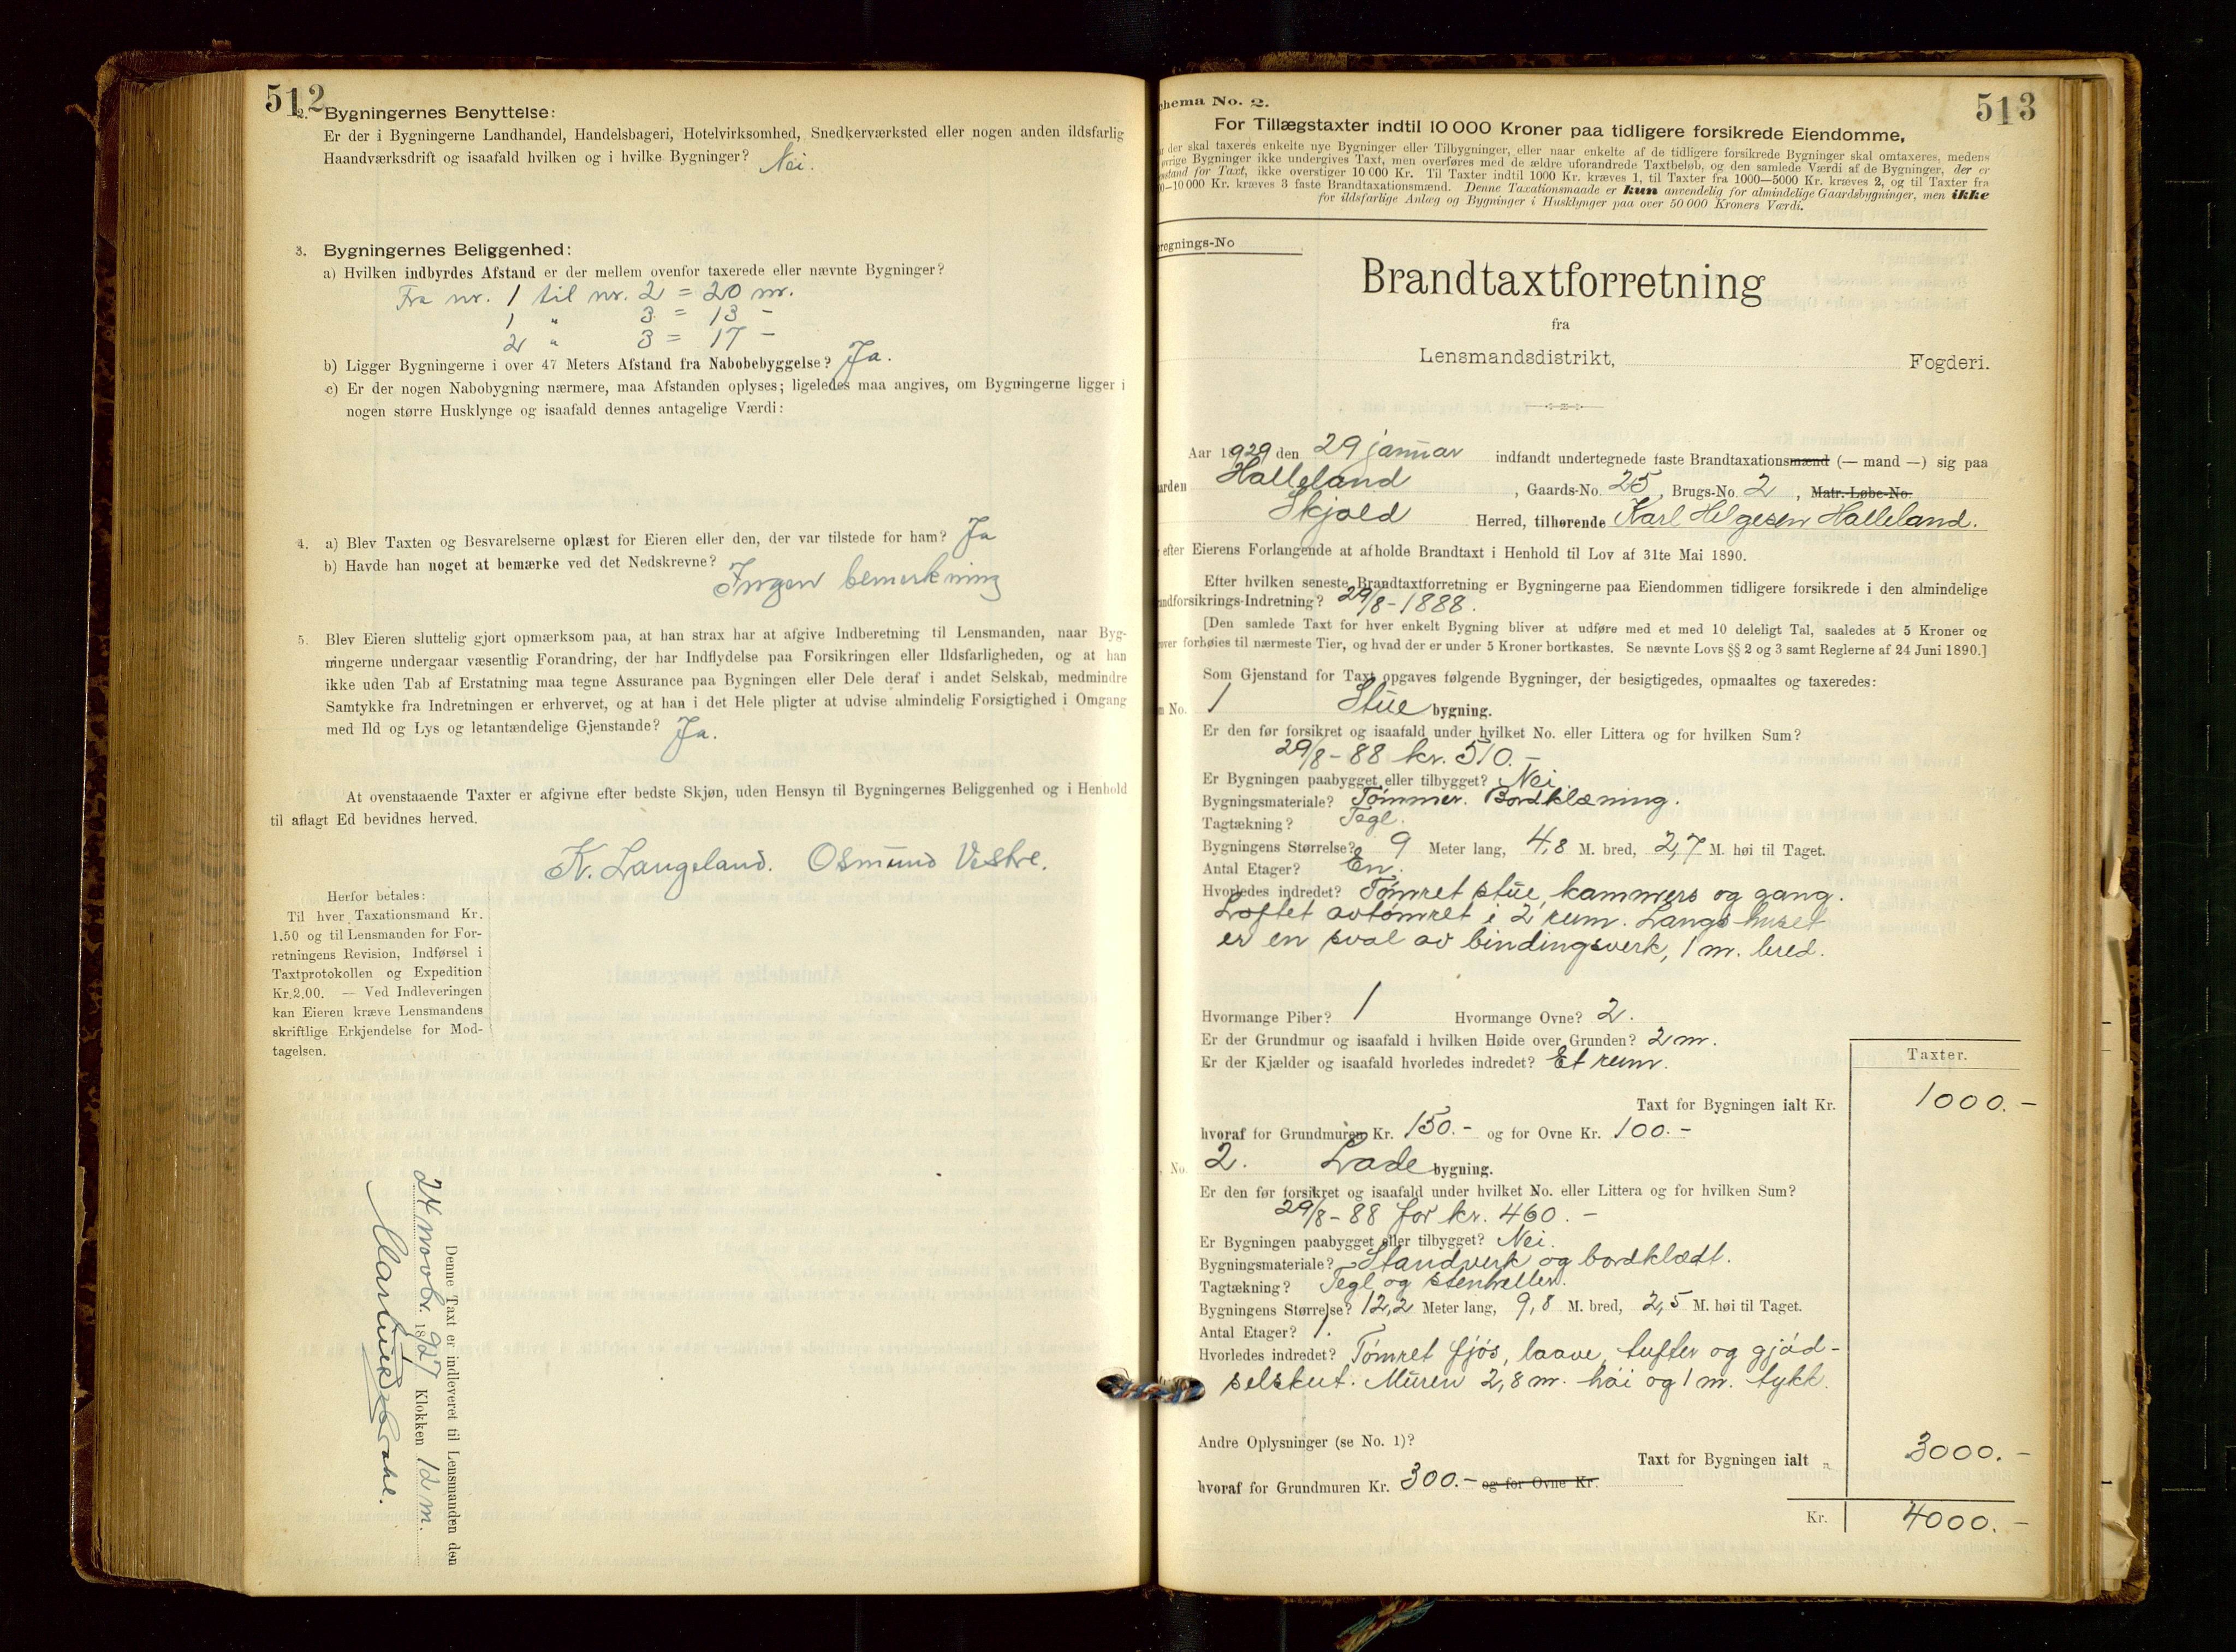 512
2. Bygningernes Benyttelse:
Er der i Bygningerne Landhandel, Handelsbageri, Hotelvirksomhed, Snedkerværksted eller nogen anden ildsfarlig
Haandværksdrift og isaafald hvilken og i hvilke Bygninger? Nei.
3. Bygningernes Beliggenhed:
a) Hvilken indbyrdes Afstand er der mellem ovenfor taxerede eller nævnte Bygninger?
Fra nr. 1 til nr. 2 = 20 m.
1 " 3 = 13 -
2 " 3 = 17 -
b) Ligger Bygningerne i over 47 Meters Afstand fra Nabobebyggelse? Ja.
c) Er der nogen Nabobygning nærmere, maa Afstanden oplyses; ligeledes maa angives, om Bygningerne ligger i
nogen større Husklynge og isaafald dennes antagelige Værdi:
4. a) Blev Taxten og Besvarelserne oplæst for Eieren eller den, der var tilstede for ham? Ja
b) Havde han noget at bemærke ved det Nedskrevne?
Ingen bemerkning
5. Blev Eieren sluttelig gjort opmærksom paa, at han strax har at afgive Indberetning til Lensmanden, naar Byg-
ningerne undergaar væsentlig Forandring, der har Indflydelse paa Forsikringen eller Ildsfarligheden, og at han
ikke uden Tab af Erstatning maa tegne Assurance paa Bygningen eller Dele deraf i andet Selskab, medmindre
Samtykke fra Indretningen er erhvervet, og at han i det Hele pligter at udvise almindelig Forsigtighed i Omgang
med Ild og Lys og letantændelige Gjenstande? Ja.
At ovenstaaende Taxter er afgivne efter bedste Skjøn, uden Hensyn til Bygningernes Beliggenhed og i Henhold
til aflagt Ed bevidnes herved.
K. Langeland. Osmund Vestre.
Herfor betales:
Til hver Taxationsmand Kr.
1.50 og til Lensmanden for For-
retningens Revision, Indførsel i
Taxtprotokollen og Expedition
Kr. 2.00. — Ved Indleveringen
kan Eieren kræve Lensmandens
skriftlige Erkjendelse for Mod-
tagelsen.
Denne Taxt er indleveret til Lensmanden den
24 novbr. 18927 Klokken 12 m.
513
chema No. 2.
For Tillægstaxter indtil 10 000 Kroner paa tidligere forsikrede Eiendomme,
der skal taxeres enkelte nye Bygninger eller Tilbygninger, eller naar enkelte af de tidligere forsikrede Bygninger skal omtaxeres, medens
øvrige Bygninger ikke undergives Taxt, men overføres med de ældre uforandrede Taxtbeløb, og den samlede Værdi af de Bygninger, der er
nstand for Taxt, ikke overstiger 10 000 Kr. Til Taxter indtil 1000 Kr. kræves 1, til Taxter fra 1000—5000 Kr. kræves 2, og til Taxter fra
0—10 000 Kr. kræves 3 faste Brandtaxationsmænd. Denne Taxationsmaade er kun anvendelig for almindelige Gaardsbygninger, men ikke
for ildsfarlige Anlæg og Bygninger i Husklynger paa over 50 000 Kroners Værdi.
regnings-No
Brandtaxtforretning
fra
Lensmandsdistrikt, Fogderi.
Aar 1929 den 29 januar indfandt undertegnede faste Brandtaxationsmænd (— mand —) sig paa
arden Halleland, Gaards-No. 25, Brugs-No. 2, Matr.-Løbe-No.
Skjold Herred, tilhørende Karl Helgesen Halleland.
efter Eierens Forlangende at afholde Brandtaxt i Henhold til Lov af 31te Mai 1890.
Efter hvilken seneste Brandtaxtforretning er Bygningerne paa Eiendommen tidligere forsikrede i den almindelige
andforsikrings-Indretning? 29/8-1888.
[Den samlede Taxt for hver enkelt Bygning bliver at udføre med et med 10 deleligt Tal, saaledes at 5 Kroner og
over forhøies til nærmeste Tier, og hvad der er under 5 Kroner bortkastes. Se nævnte Lovs §§ 2 og 3 samt Reglerne af 24 Juni 1890.]
Som Gjenstand for Taxt opgaves følgende Bygninger, der besigtigedes, opmaaltes og taxeredes:
No. 1 Stue bygning.
Er den før forsikret og isaafald under hvilket No. eller Littera og for hvilken Sum?
29/8-88 kr. 510.-
Er Bygningen paabygget eller tilbygget? Nei.
Bygningsmateriale? Tømmer. Bordklæning.
Tagtækning? Tegl.
Bygningens Størrelse? 9 Meter lang, 4,8 M. bred, 2,7 M. høi til Taget.
Antal Etager? En.
Hvorledes indredet? Tømret stue, kammers og gang.
Loftet avtømret i 2 rum. Langs huset
er en sval av bindingsverk, 1 m. bred.
Hvormange Piber? 1 Hvormange Ovne? 2.
Er der Grundmur og isaafald i hvilken Høide over Grunden? 2 m.
Er der Kjælder og isaafald hvorledes indredet? Et rum.
Taxter.
Taxt for Bygningen ialt Kr. 1000.-
hvoraf for Grundmuren Kr. 150.- og for Ovne Kr. 100.-
No. 2. Lade bygning.
Er den før forsikret og isaafald under hvilket No. eller Littera og for hvilken Sum?
29/8-88 for kr. 460.-
Er Bygningen paabygget eller tilbygget? Nei.
Bygningsmateriale? Standverk og bordklædt.
Tagtækning? Tegl og stenheller.
Bygningens Størrelse? 12,2 Meter lang, 9,8 M. bred, 2,5 M. høi til Taget.
Antal Etager? 1.
Hvorledes indredet? Tømret fjøs, laave, tufter og gjød-
selskut. Muren 2,8 m. høi og 1 m. tykk.
Andre Oplysninger (se No. 1)?
Taxt for Bygningen ialt „ 3000.-
hvoraf for Grundmuren Kr. 300.- og for Ovne Kr.
Kr. 4000.-